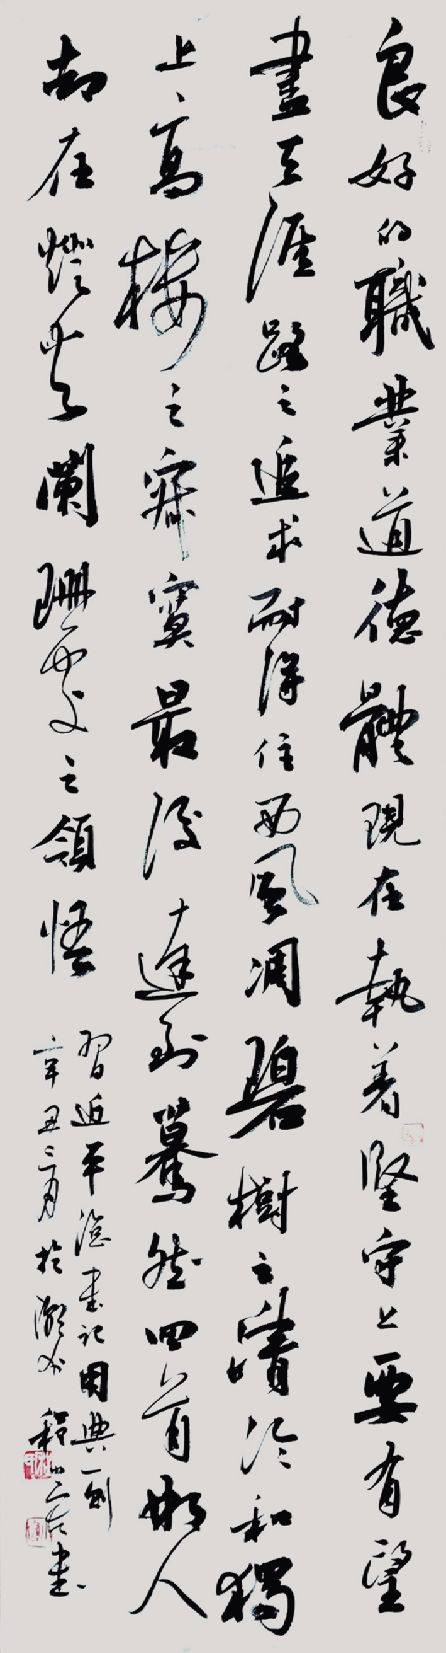 良好的職業道德體現在執着堅守上要有望
盡天涯路之追求耐得住西風凋碧樹之清冷和獨
上高樓之寂寞最後達到驀然回首那人
却在燈火闌珊處之領悟
習近平總書記用典一則
辛丑三月於 書